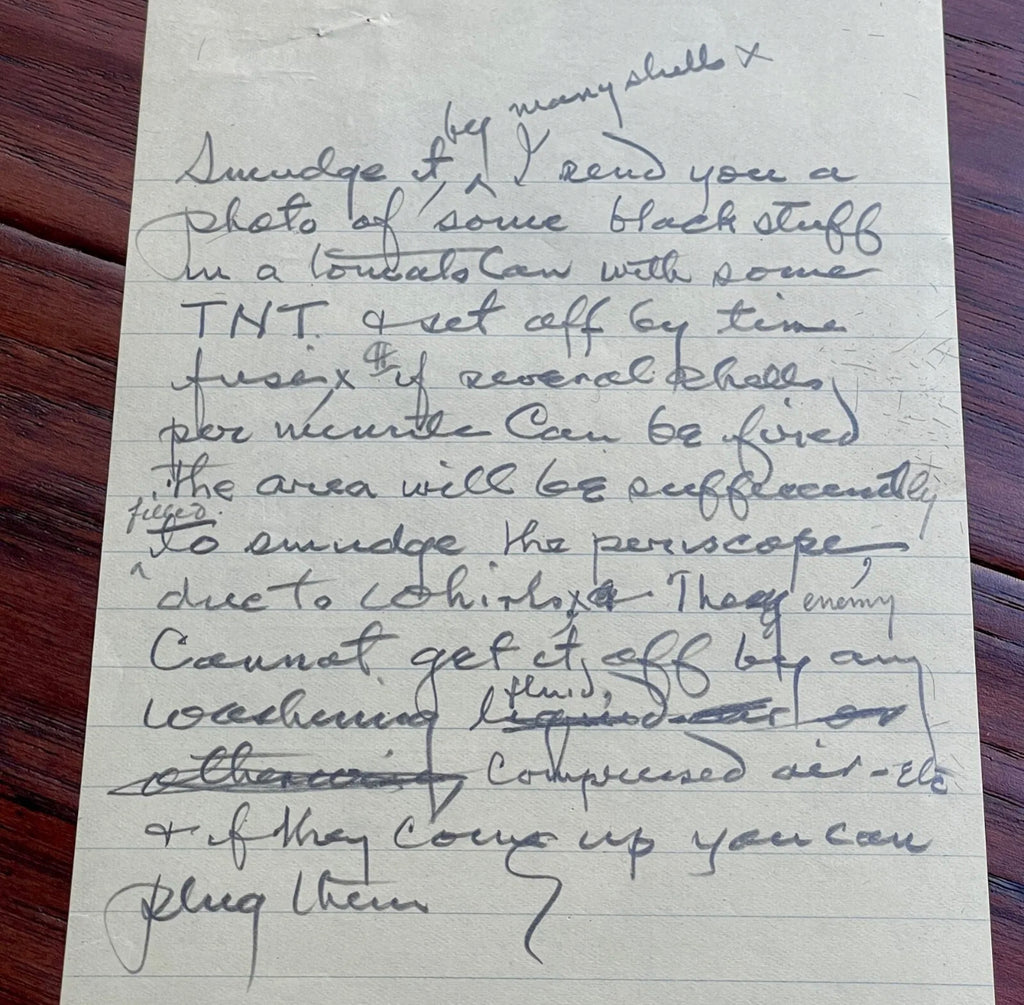 by many shells x
Smudge it ^ I send you a
photo of some black stuff
in a tomato Can with some
TNT. & set off by time
fuse x # if several shells
per minute Can be fired
the area will be sufficiently
filled
^ to smudge the periscope,
due to whirls x They enemy
Cannot get it off by any
washing liquid air or
fluid,
otherwise Compressed air - Etc
& if they Come up you can
plug them